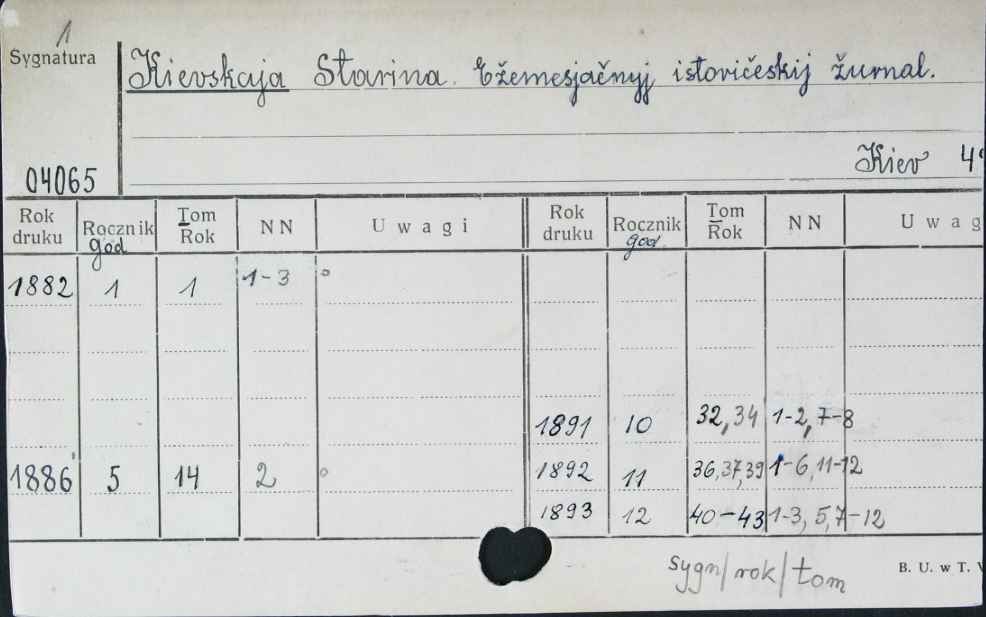 1
Sygnatura
Kievskaja Starina. Ežemesjačnyj istoričeskij žurnal.
Kiev 4°
04065
Rok druku Rocznik god Tom Rok NN Uwagi Rok druku Rocznik god Tom Rok NN Uwag
1882 1 1 1-3 °
1891 10 32,34 1-2,7-8
1886 5 14 2 ° 1892 11 36,37,39 1-6,11-12
1893 12 40-43 1-3, 5,7-12
sygn/rok/tom
B. U. w T.